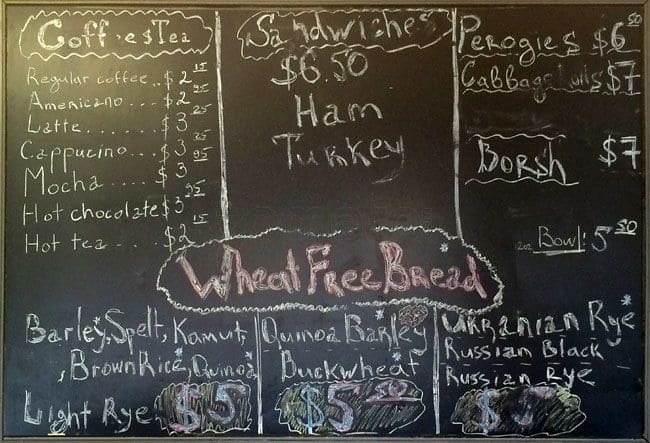 Coff es Tea
Regular coffee .. $2 15
Americano ... $2 25
Latte ..... $3 25
Cappucino ... $3 25
Mocha .... $3 95
Hot chocolate $3 25
Hot tea ... $2 15
Sandwishes
$6.50
Ham
Turkey
Perogies $6 50
Cabbage $7
Borsh $7
12oz Bowl: 5 50
Wheat Free Bread
Barley, Spelt, Kamut,
, Brown Rice, Quinoa
Light Rye $5
Quinoa Barley
Buckwheat
$5 50
Ukranian Rye
Russian Black
Russian Rye
$